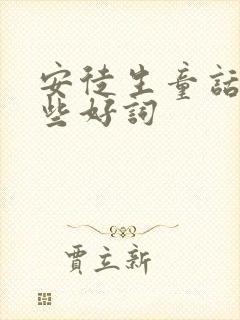 安徒生童話
些好詞
賈立新